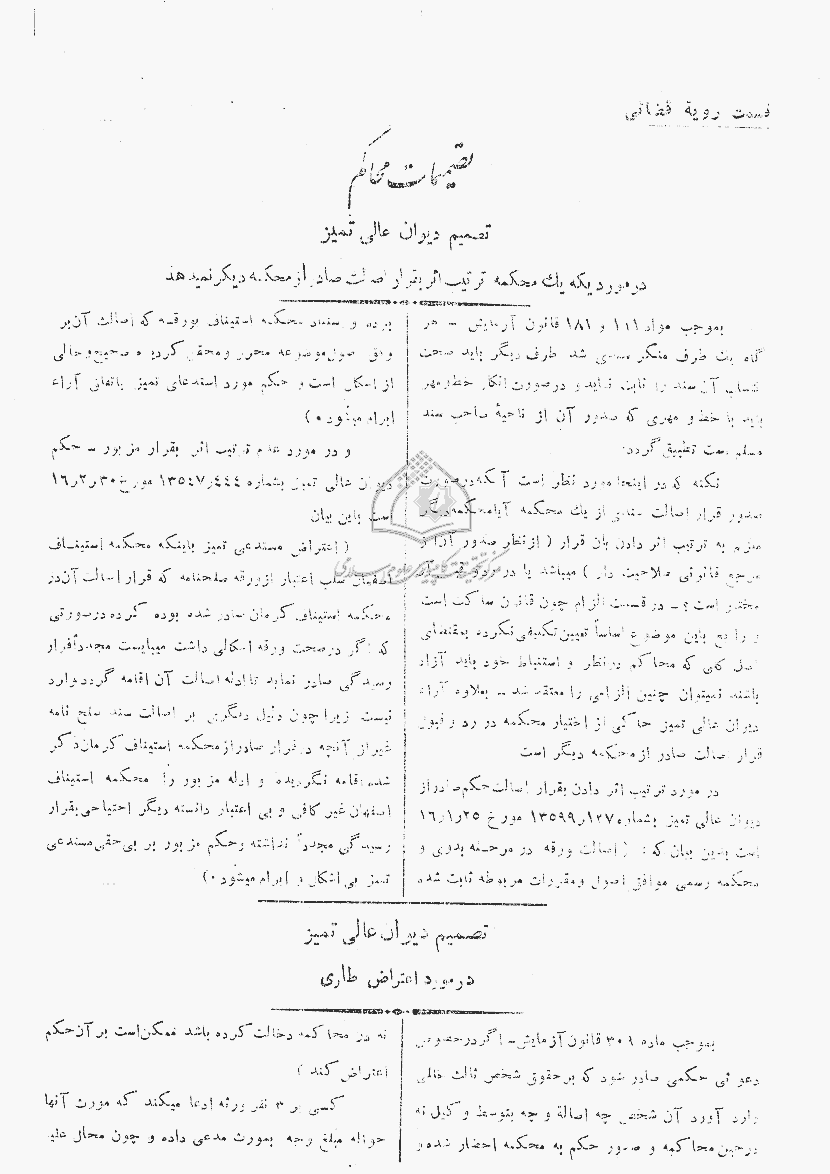 قسمت رویهٔ قضائی
تصمیمات محاکم
تصمیم دیوان عالی تمیز
درموردیکه یك محکمه ترتیب اثر بقرار اصالت صادر از محکمه دیگر نمیدهد
بموجب مواد و ۱۸۱ قانون آزمایش - هر
گاه طرف منکر شد طرف دیگر باید صحت
آن سند را ثابت نماید و درصورت انکار خط ومهر
باید با خط و مهری که صدور آن از ناحیهٔ صاحب سند
مسلم است تطبیق گردد.
نکته که در اینجا مورد نظر است آنکه درصورت
صدور قرار اصالت سندی از یك محکمه آیا محکمه دیگر
ملزم به ترتیب اثر دادن بان قرار ( از نظر صدور آن از
مرجع قانونی صلاحیت دار ) میباشد یا در رد و قبول آن
مختار است ؟ - در قسمت الزام چون قانون ساکت است
و راجع باین موضوع اساساً تعیین تکلیفی نکرده بمقتضای
اصل کلی که محاکم درنظر و استنباط خود باید آزاد
باشند نمیتوان چنین الزامی را معتقد شد - بعلاوه آراء
دیوان عالی تمیز حاکی از اختیار محکمه در رد و قبول
قرار اصالت صادر از محکمه دیگر است
در مورد ترتیب اثر دادن بقرار اصالت حکم صادر از
دیوان عالی تمیز بشماره ۱۲۷ر۱۳۵۹۹ مورخ ۲۵ر۱ر۱۶
است بدین بیان که : ( اصالت ورقه در مرحله بدوی و
محکمه رسمی موافق اصول ومقررات مربوطه ثابت شده
بوده و استناد محکمه استیناف بورقه که اصالت آن بر
وفق اصول موضوعه محرز ومحقق گردیده صحیح وخالی
از اشکال است و حکم مورد استدعای تمیز باتفاق آراء
ابرام میشود ۰ )
و در مورد عدم ترتیب اثر بقرار مزبور - حکم
دیوان عالی تمیز بشماره ۴۴۴ر۱۳۵۴۷ مورخ ۳۰ر۲ر۱۶
است باین بیان
( اعتراض مستدعی تمیز باینکه محکمه استیناف
اصفهان سلب اعتبار ازورقه صلحنامه که قرار اصالت آن در
محکمه استیناف کرمان صادر شده بوده کرده درصورتی
که اگر درصحت ورقه اشکالی داشت میبایست مجدداً قرار
رسیدگی صادر نماید تا ادله اصالت آن اقامه گردد وارد
نیست زیرا چون دلیل دیگری بر اصالت سند صلح نامه
غیر از آنچه در قرار صادر از محکمه استیناف کرمان ذکر
شده اقامه نگردیده و ادله مزبور را محکمه استیناف
اصفهان غیر کافی و بی اعتبار دانسته دیگر احتیاجی بقرار
رسیدگی مجدد نداشته وحکم مزبور بر بی حقی مستدعی
تمیز بی اشکال و ابرام میشود ۰ )
تصمیم دیوان عالی تمیز
درمورد اعتراض طاری
بموجب ماده ۳۰۹ قانون آزمایش - اگر درخصوص
دعوائی حکمی صادر شود که بر حقوق شخص ثالث خللی
وارد آورد آن شخص چه اصالة و چه بتوسط وکیل نه
درحین محاکمه و صدور حکم به محکمه احضار شده و
نه در محاکمه دخالت کرده باشد ممکن است بر آن حکم
اعتراض کند )
کسی بر ۳ نفر ورثه ادعا میکند که مورث آنها
حواله مبلغ وجه بمورث مدعی داده و چون محال علیه
مرکز تحقیقات کامپیوتری علوم اسلامی